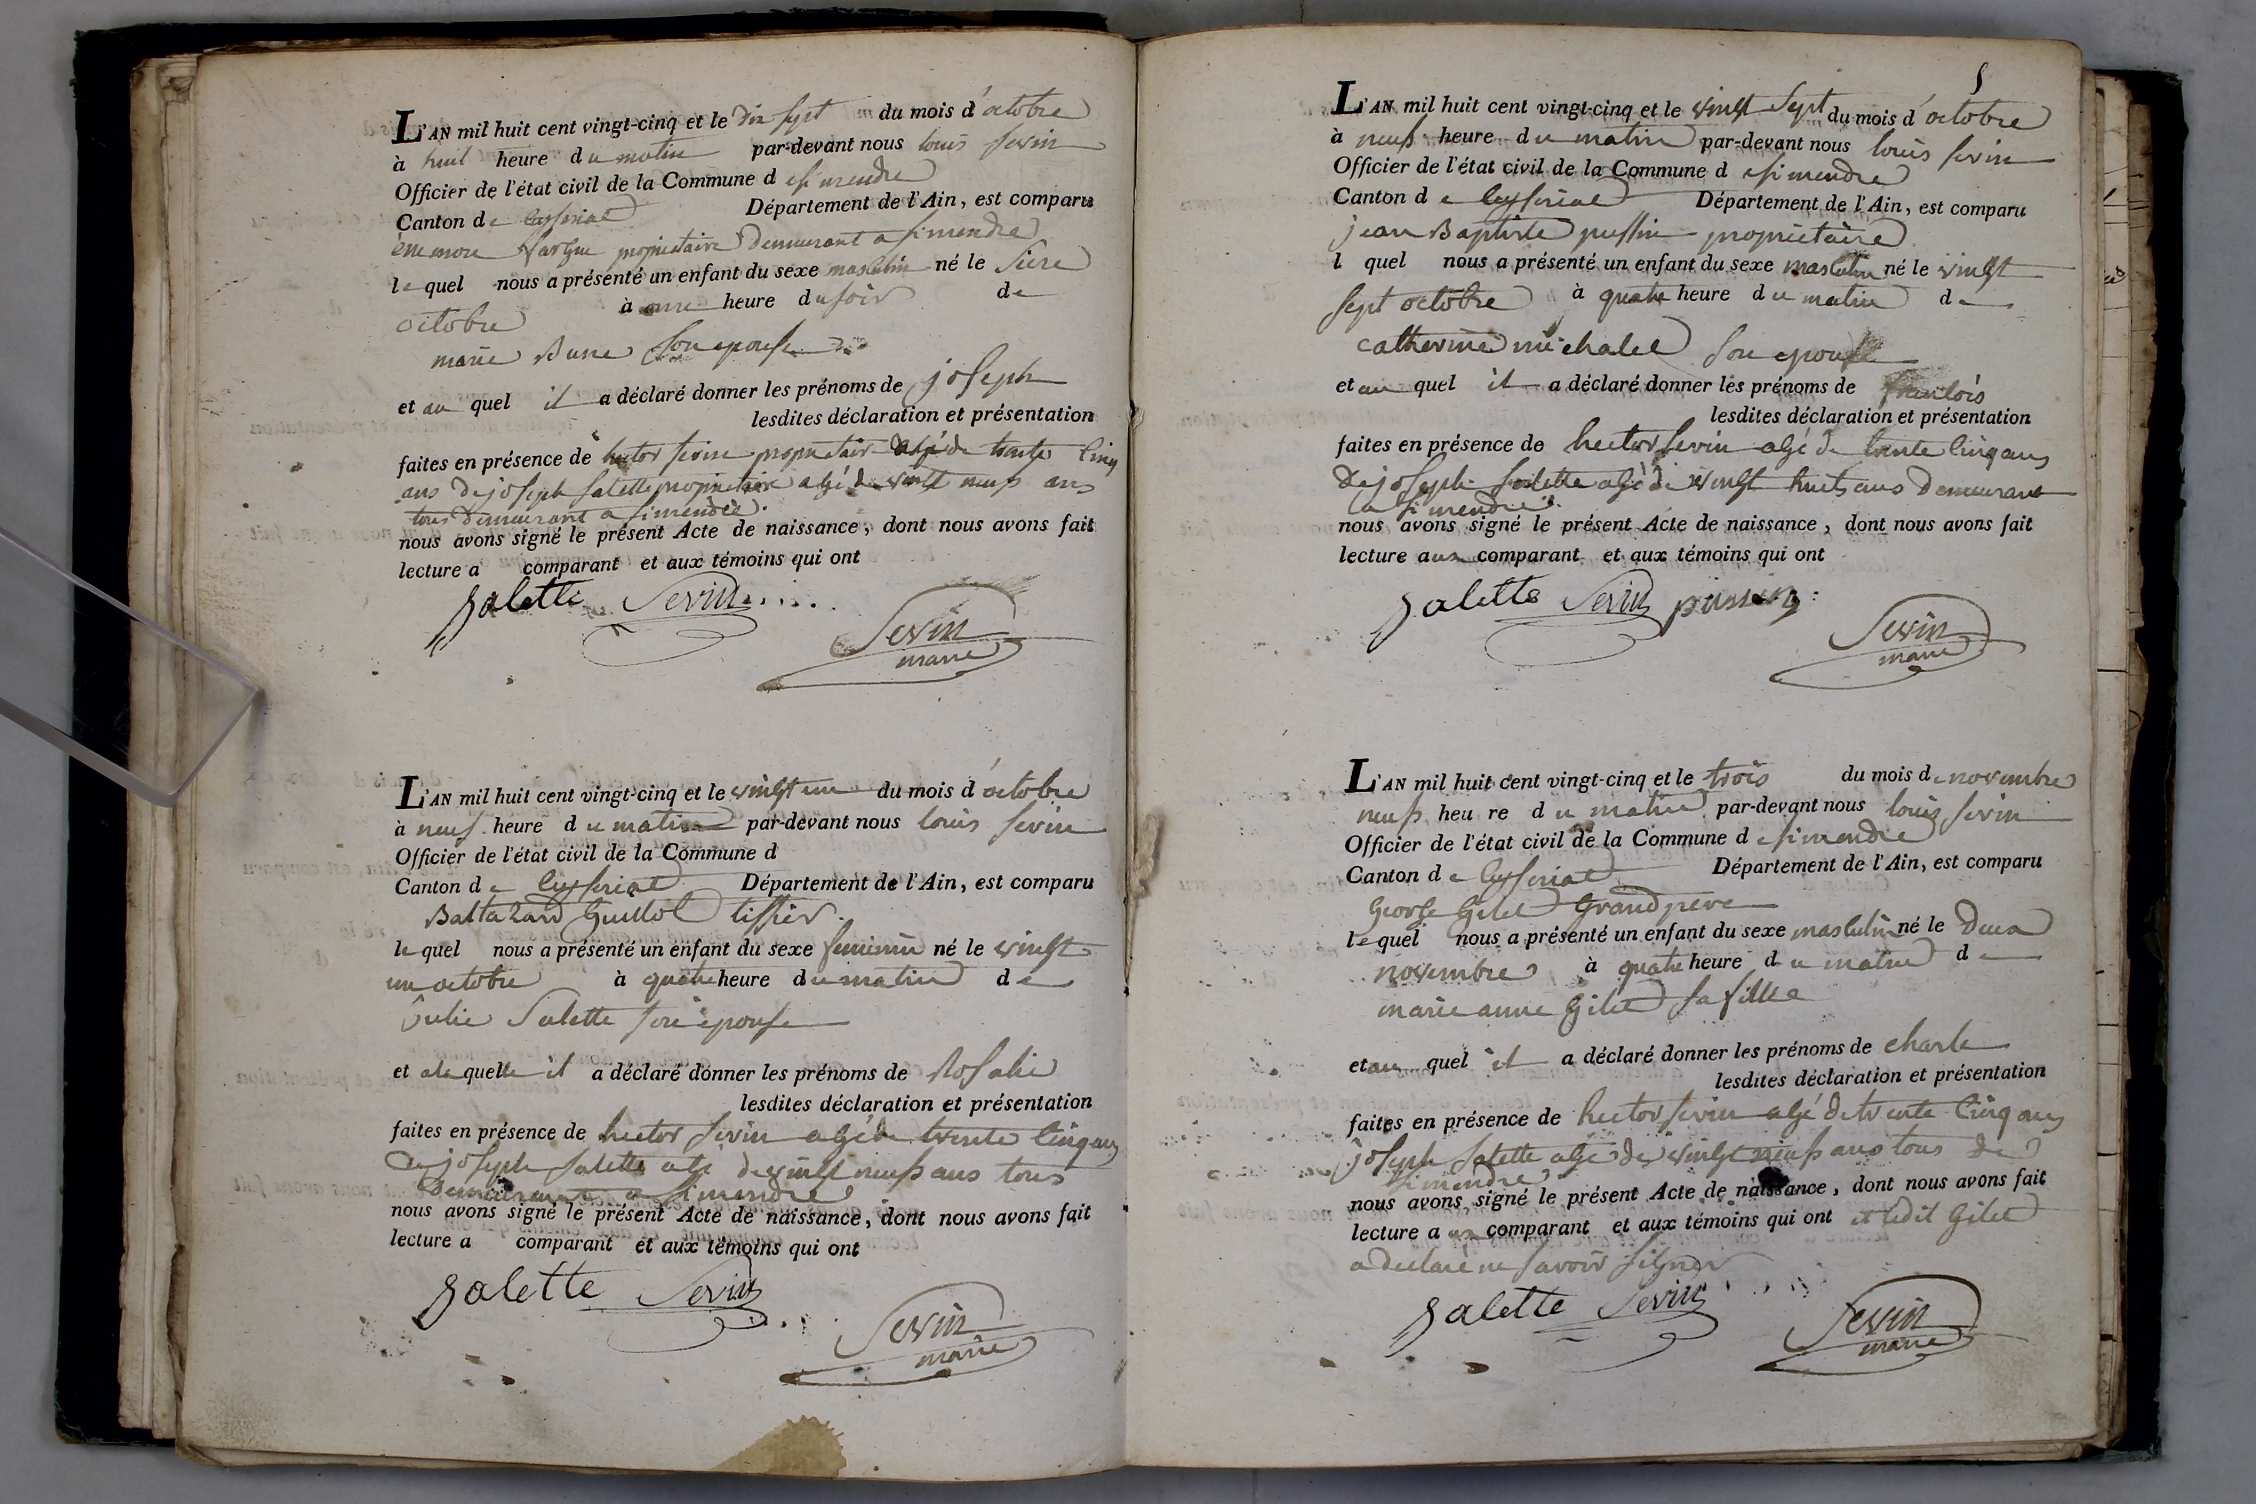 L'AN mil huit cent vingt-cinq et le dix sept du mois d'octobre
à huit heure du matin par-devant nous louis sevin
Officier de l'état civil de la Commune de simendre
Canton de Ceyseriat Département de l'Ain, est comparu
propriétaire demeurant a simendre
lequel nous a présenté un enfant du sexe masculin né le
octobre à onze heure du soir de
marie son epouse
et au quel il a déclaré donner les prénoms de joseph
lesdites déclaration et présentation
faites en présence de hector sevin propriétaire agé de trente cinq
ans de joseph salette propriétaire agé de vingt neuf ans
tous demeurant a simendre
nous avons signé le présent Acte de naissance, dont nous avons fait
lecture a comparant et aux témoins qui ont
Salette Sevin
Sevin
maire
L'AN mil huit cent vingt-cinq et le vingt un du mois d'octobre
à neuf heure du matin par-devant nous louis sevin
Officier de l'état civil de la Commune d
Canton de Ceyseriat Département de l'Ain, est comparu
Baltazard Guillot tissier
lequel nous a présenté un enfant du sexe feminin né le vingt
un octobre à quatre heure du matin de
julie Salette son epouse
et a la quelle il a déclaré donner les prénoms de Rosalie
lesdites déclaration et présentation
faites en présence de hector sevin agé de trente cinq ans
de joseph salette agé de vingt neuf ans tous
demeurant a simendre
nous avons signé le présent Acte de naissance, dont nous avons fait
lecture a comparant et aux témoins qui ont
Salette Sevin
Sevin
maire
5
L'AN mil huit cent vingt-cinq et le vingt sept du mois d'octobre
à neuf heure du matin par-devant nous louis sevin
Officier de l'état civil de la Commune de simendre
Canton de Ceyseriat Département de l'Ain, est comparu
jean Baptiste pussin propriétaire
l quel nous a présenté un enfant du sexe masculin né le vingt
sept octobre à quatre heure du matin de
catherine michalet son epouse
et au quel il a déclaré donner les prénoms de francois
lesdites déclaration et présentation
faites en présence de hector sevin agé de trente cinq ans
de joseph salette agé de vingt huit ans demeurant
a simendre
nous avons signé le présent Acte de naissance, dont nous avons fait
lecture aux comparant et aux témoins qui ont
Salette Sevin pussin
Sevin
maire
L'AN mil huit cent vingt-cinq et le trois du mois de novembre
neuf heure du matin par-devant nous louis sevin
Officier de l'état civil de la Commune de simendre
Canton de Ceyseriat Département de l'Ain, est comparu
George Gilet Grand pere
lequel nous a présenté un enfant du sexe masculin né le deux
novembre à quatre heure du matin de
marie anne Gilet sa fille
et au quel il a déclaré donner les prénoms de charle
lesdites déclaration et présentation
faites en présence de hector sevin agé de trente cinq ans
joseph salette agé de vingt neuf ans tous de
simendre
nous avons signé le présent Acte de naissance, dont nous avons fait
lecture aux comparant et aux témoins qui ont et ledit Gilet
a declaré ne savoir signer
Salette Sevin
Sevin
maire